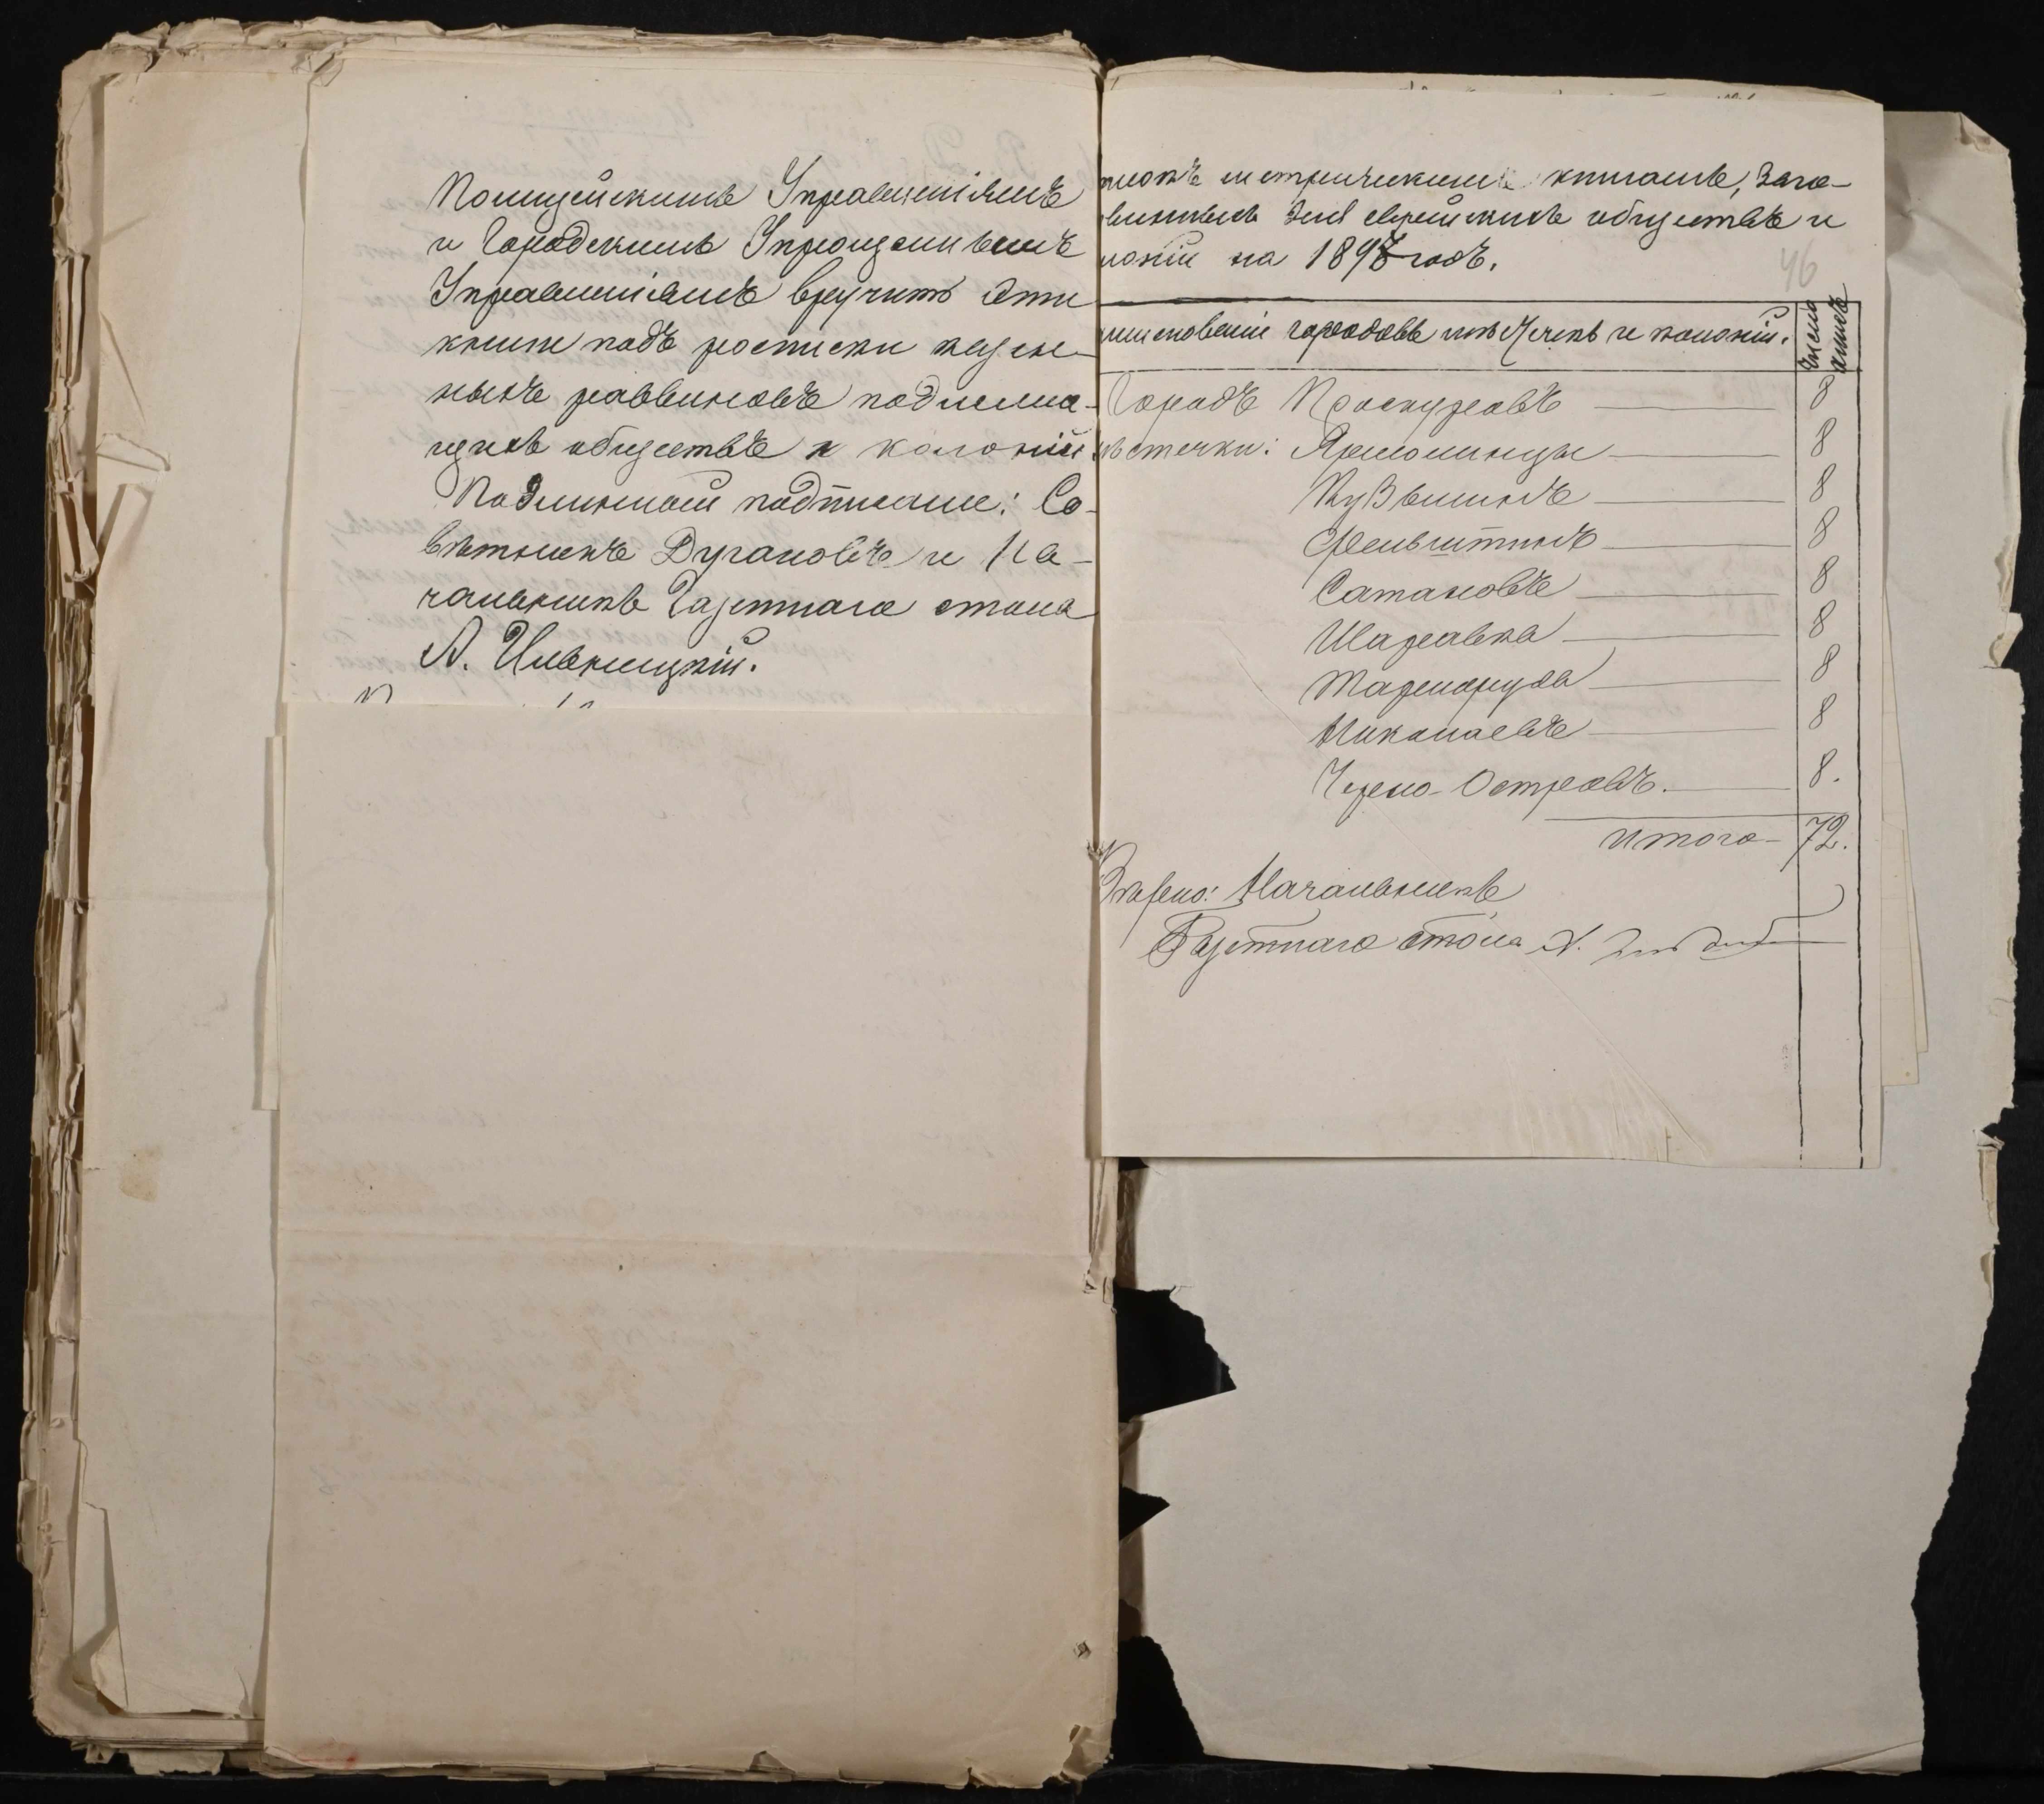 Полицейскимъ Управленіямъ
и Городскимъ Упрощеннымъ
Управленіямъ вручить эти
книги подъ росписки казен-
ныхъ раввиновъ подлежа-
щихъ обществъ и колоній
Подлинной подписали: Со-
вѣтникъ Дугановъ и На-
чальникъ Газетнаго стола
А. Ильницкій.
метрическимъ книгамъ, заго-
еврейскихъ обществъ и
на 1898 годъ.
46
городовъ мѣстечекъ и колоній.
Число
книгъ
Городъ Проскуровъ 8
мѣстечки: Ярмолинцы 8
Кузьминъ 8
Фельштинъ 8
Сатановъ 8
Шаравка 8
Тарноруда 8
Николаевъ 8
Черно-Островъ. 8.
Итого - 72.
Вѣрно: Начальникъ
Газетнаго стола А.